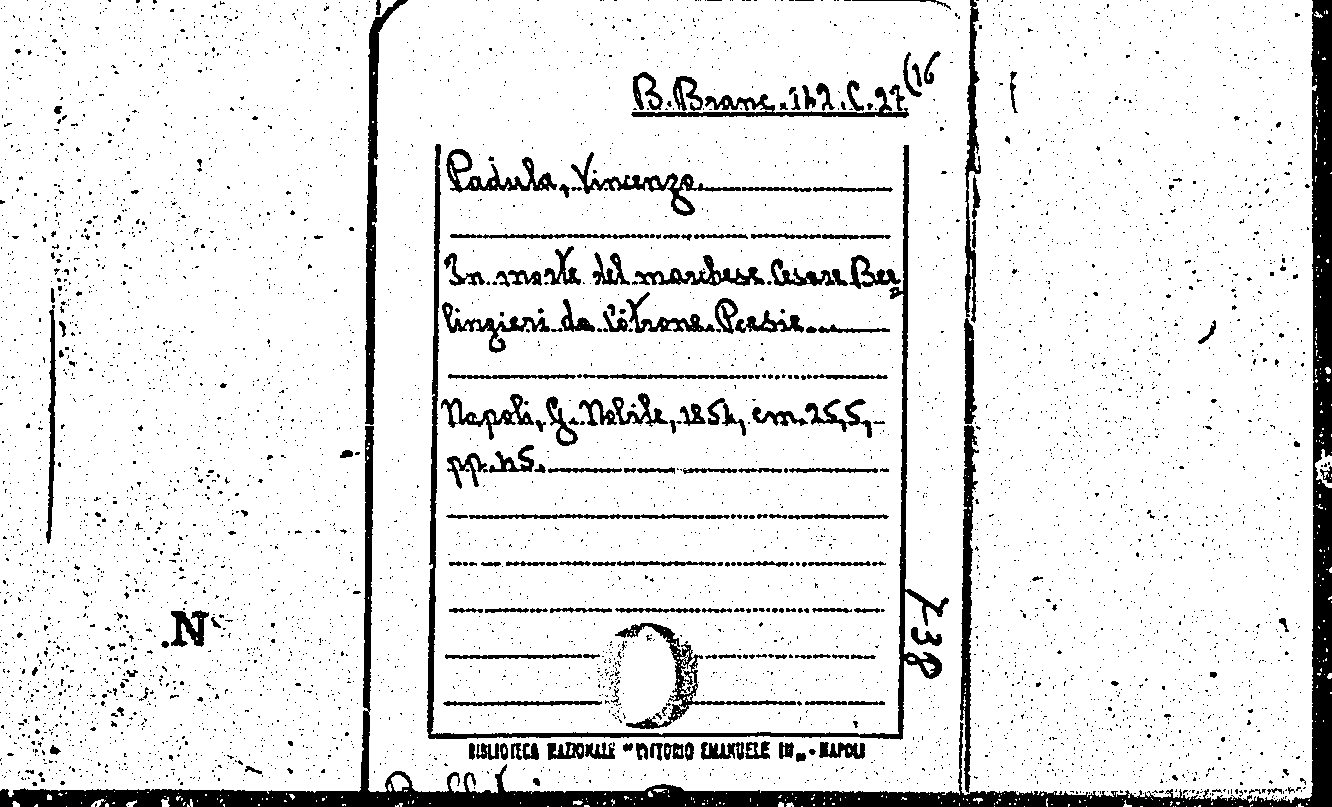 B. Branc. 142. C. 27(16
Padula, Vincenzo.
In morte del marchese Cesare Ber=
lingieri da Cotrone. Poesie...
Napoli, G. Nobile, 1854, cm. 25,5,
pp. 45.
7-38
BIBLIOTECA NAZIONALE "VITTORIO EMANUELE III" - NAPOLI
N.